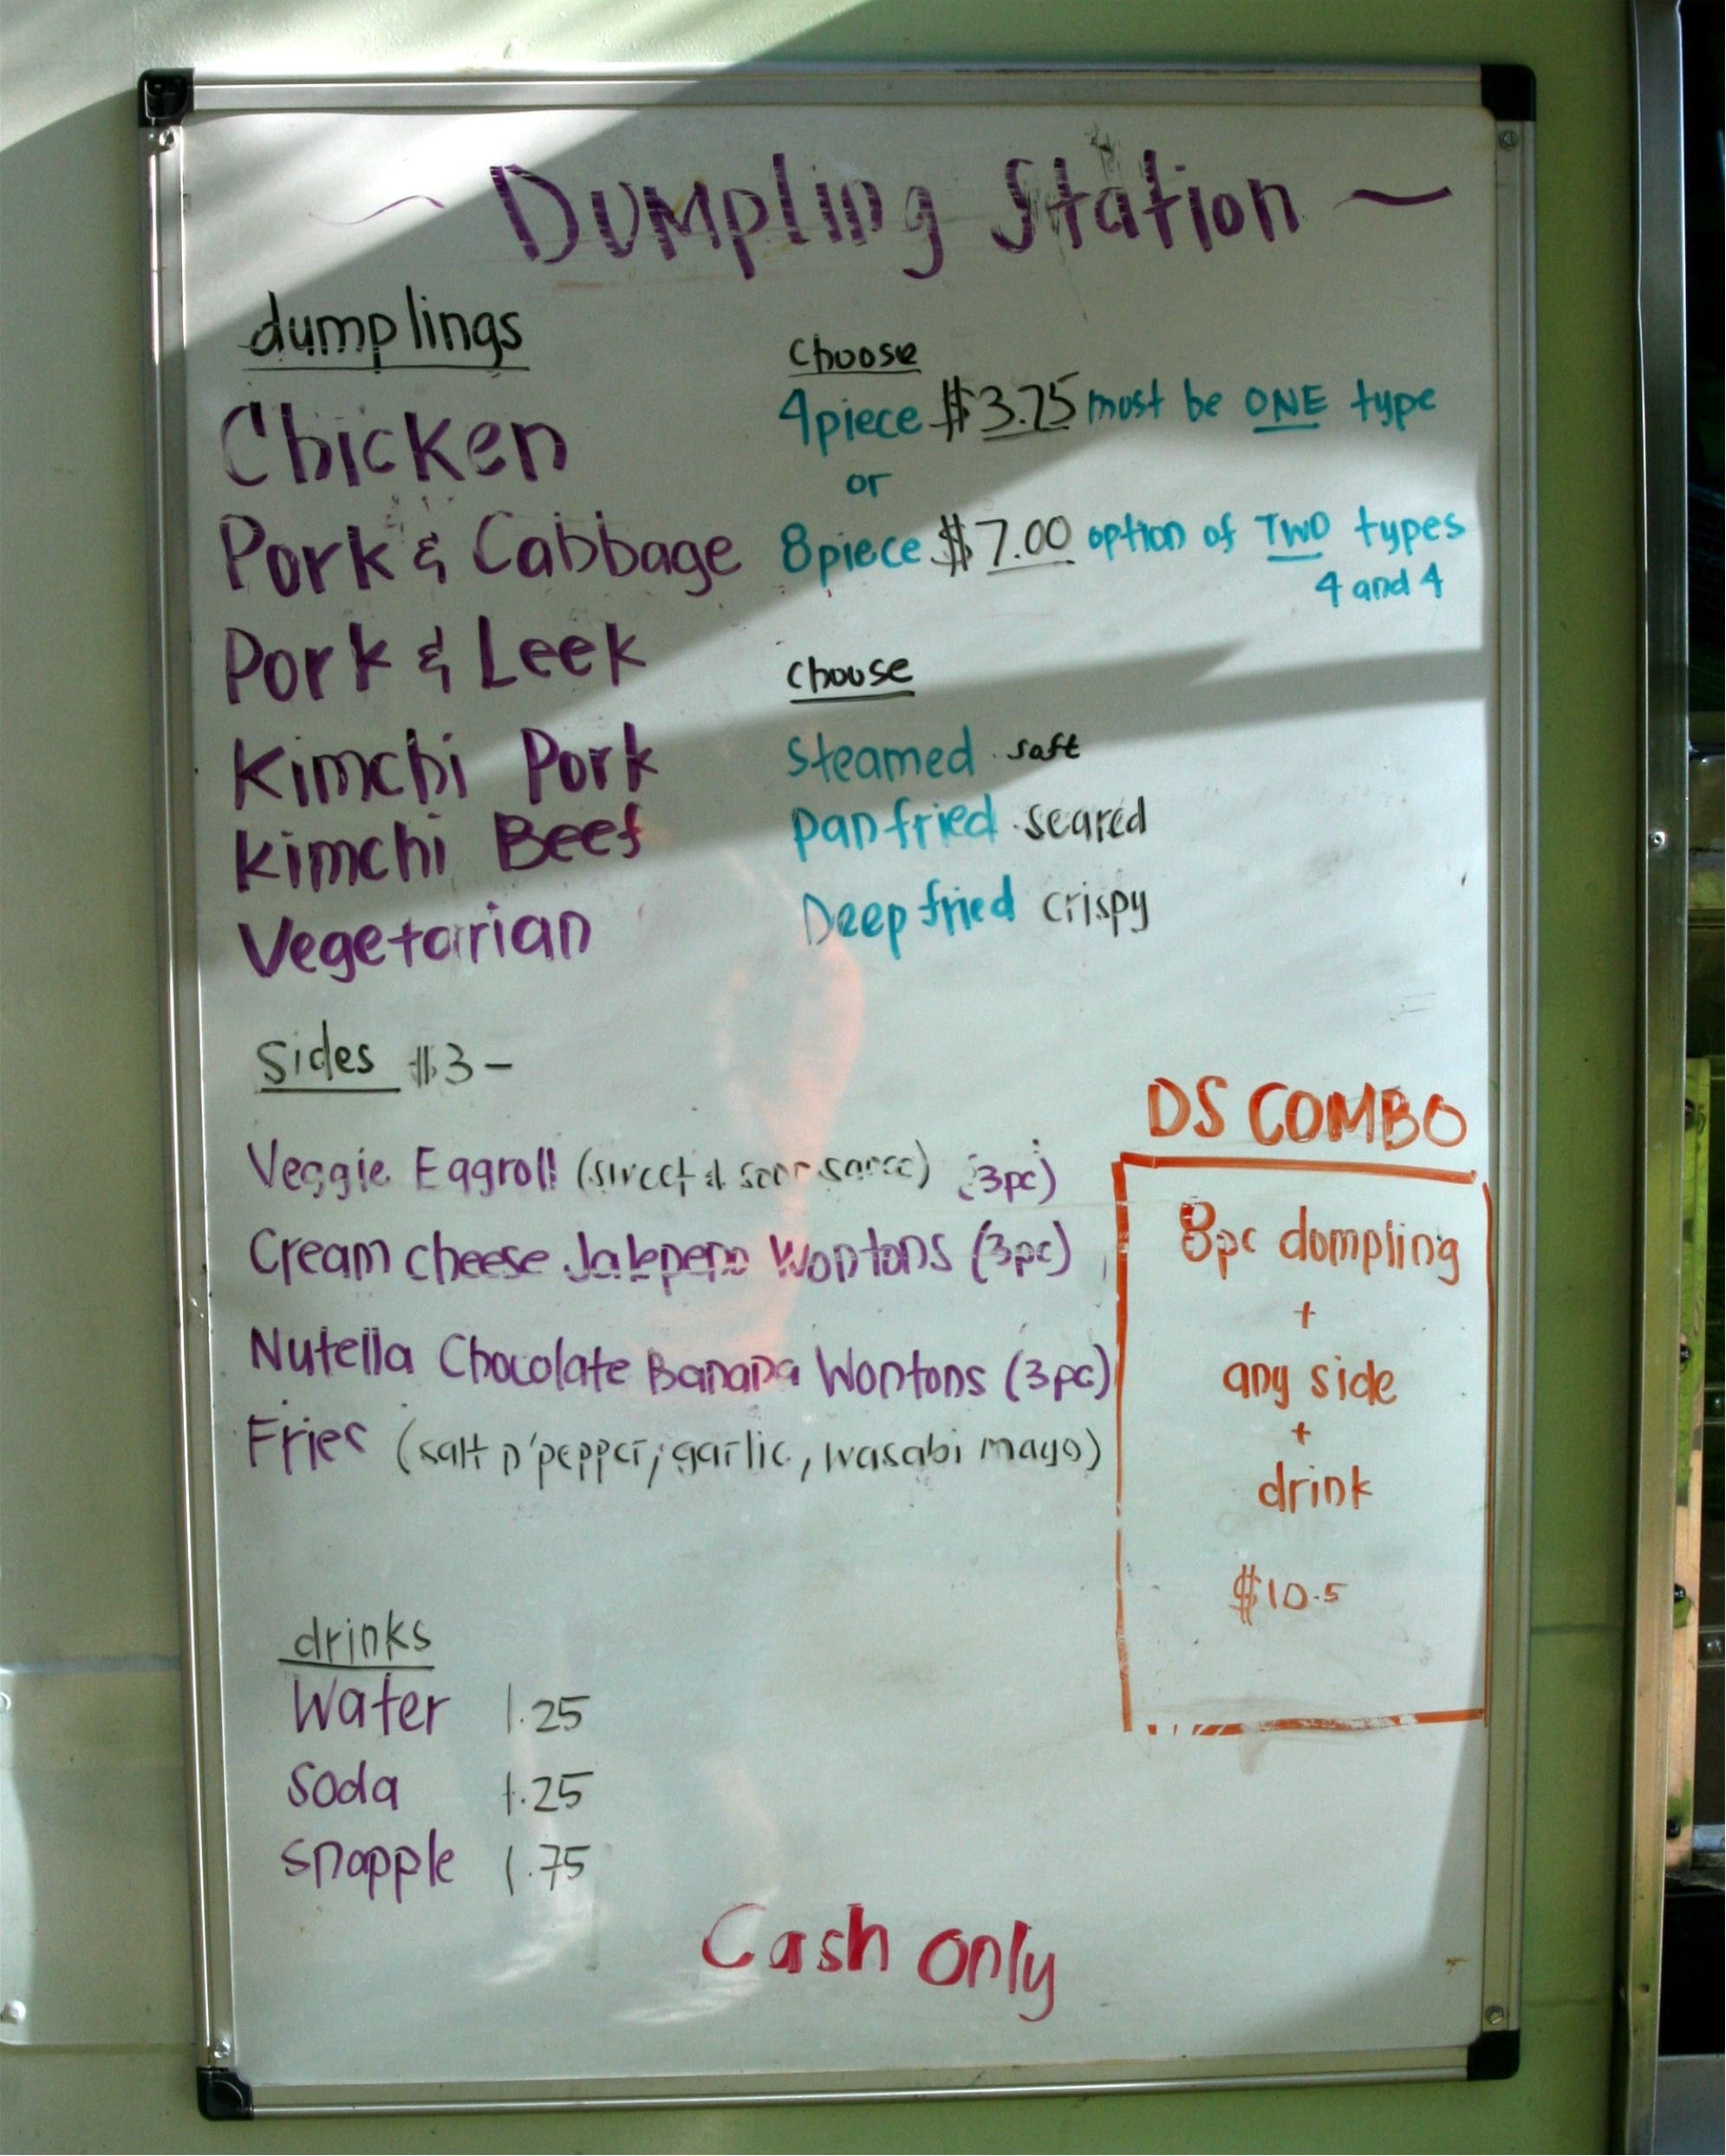 ~ Dumpling Station ~
dumplings
Chicken
Pork & Cabbage
Pork & Leek
Kimchi Pork
Kimchi Beef
Vegetarian
Choose
4piece $3.75 must be ONE type
or
8piece $7.00 option of TWO types
4 and 4
Choose
Steamed soft
Pan fried seared
Deep fried crispy
Sides $3-
Veggie Eggroll (sweet & sour sauce) (3pc)
Cream cheese Jalepeno Wontons (3pc)
Nutella Chocolate Banana Wontons (3pc)
Fries (salt n'pepper, garlic, wasabi mayo)
DS COMBO
8pc dumpling
+
any side
+
drink
$10.5
drinks
Water 1.25
Soda 1.25
Snapple 1.75
Cash only